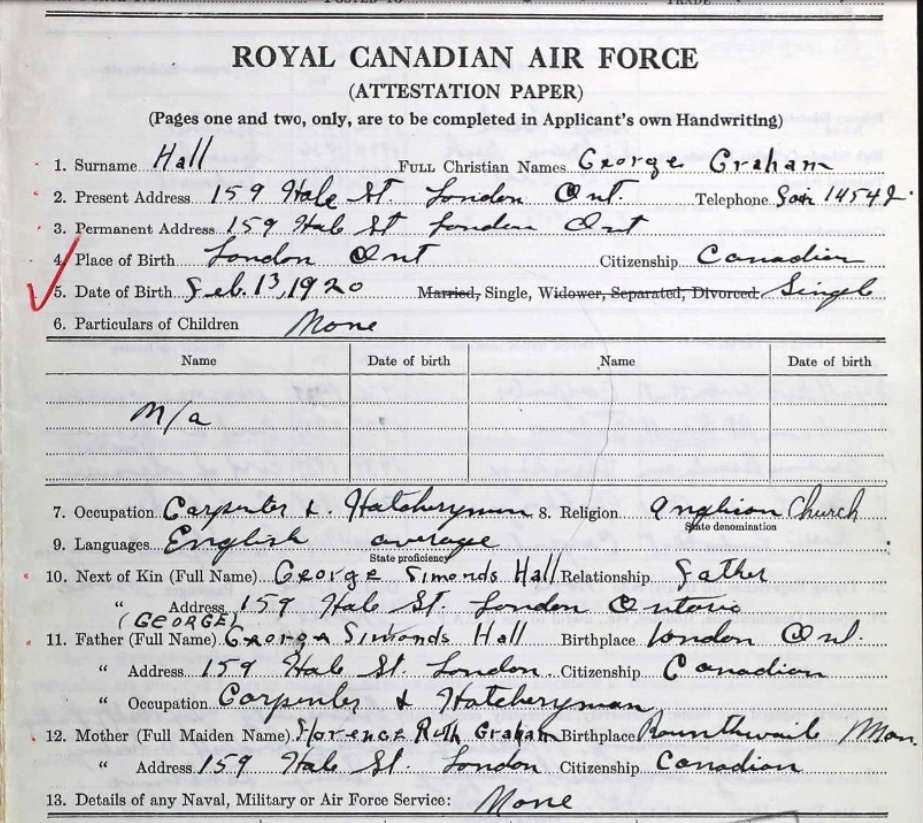 ROYAL CANADIAN AIR FORCE
(ATTESTATION PAPER)
(Pages one and two, only, are to be completed in Applicant's own Handwriting)
1. Surname Hall FULL Christian Names George Graham
2. Present Address 159 Hale St. London Ont. Telephone 14542
3. Permanent Address 159 Hale St London Ont
4. Place of Birth London Ont Citizenship Canadian
5. Date of Birth Feb. 13, 1920 Married, Single, Widower, Separated, Divorced. Single
6. Particulars of Children None
Name Date of birth Name Date of birth
N/a
7. Occupation Carpenter & Hatcheryman 8. Religion Anglican Church
State denomination
9. Languages English average
State proficiency
10. Next of Kin (Full Name) George Simonds Hall Relationship Father
" Address 159 Hale St. London Ontario
(GEORGE)
11. Father (Full Name) George Simonds Hall Birthplace London Ont.
" Address 159 Hale St. London Citizenship Canadian
" Occupation Carpenter & Hatcheryman
12. Mother (Full Maiden Name) Florence Ruth Graham Birthplace Rounthwaite Man
" Address 159 Hale St. London Citizenship Canadian
13. Details of any Naval, Military or Air Force Service: None